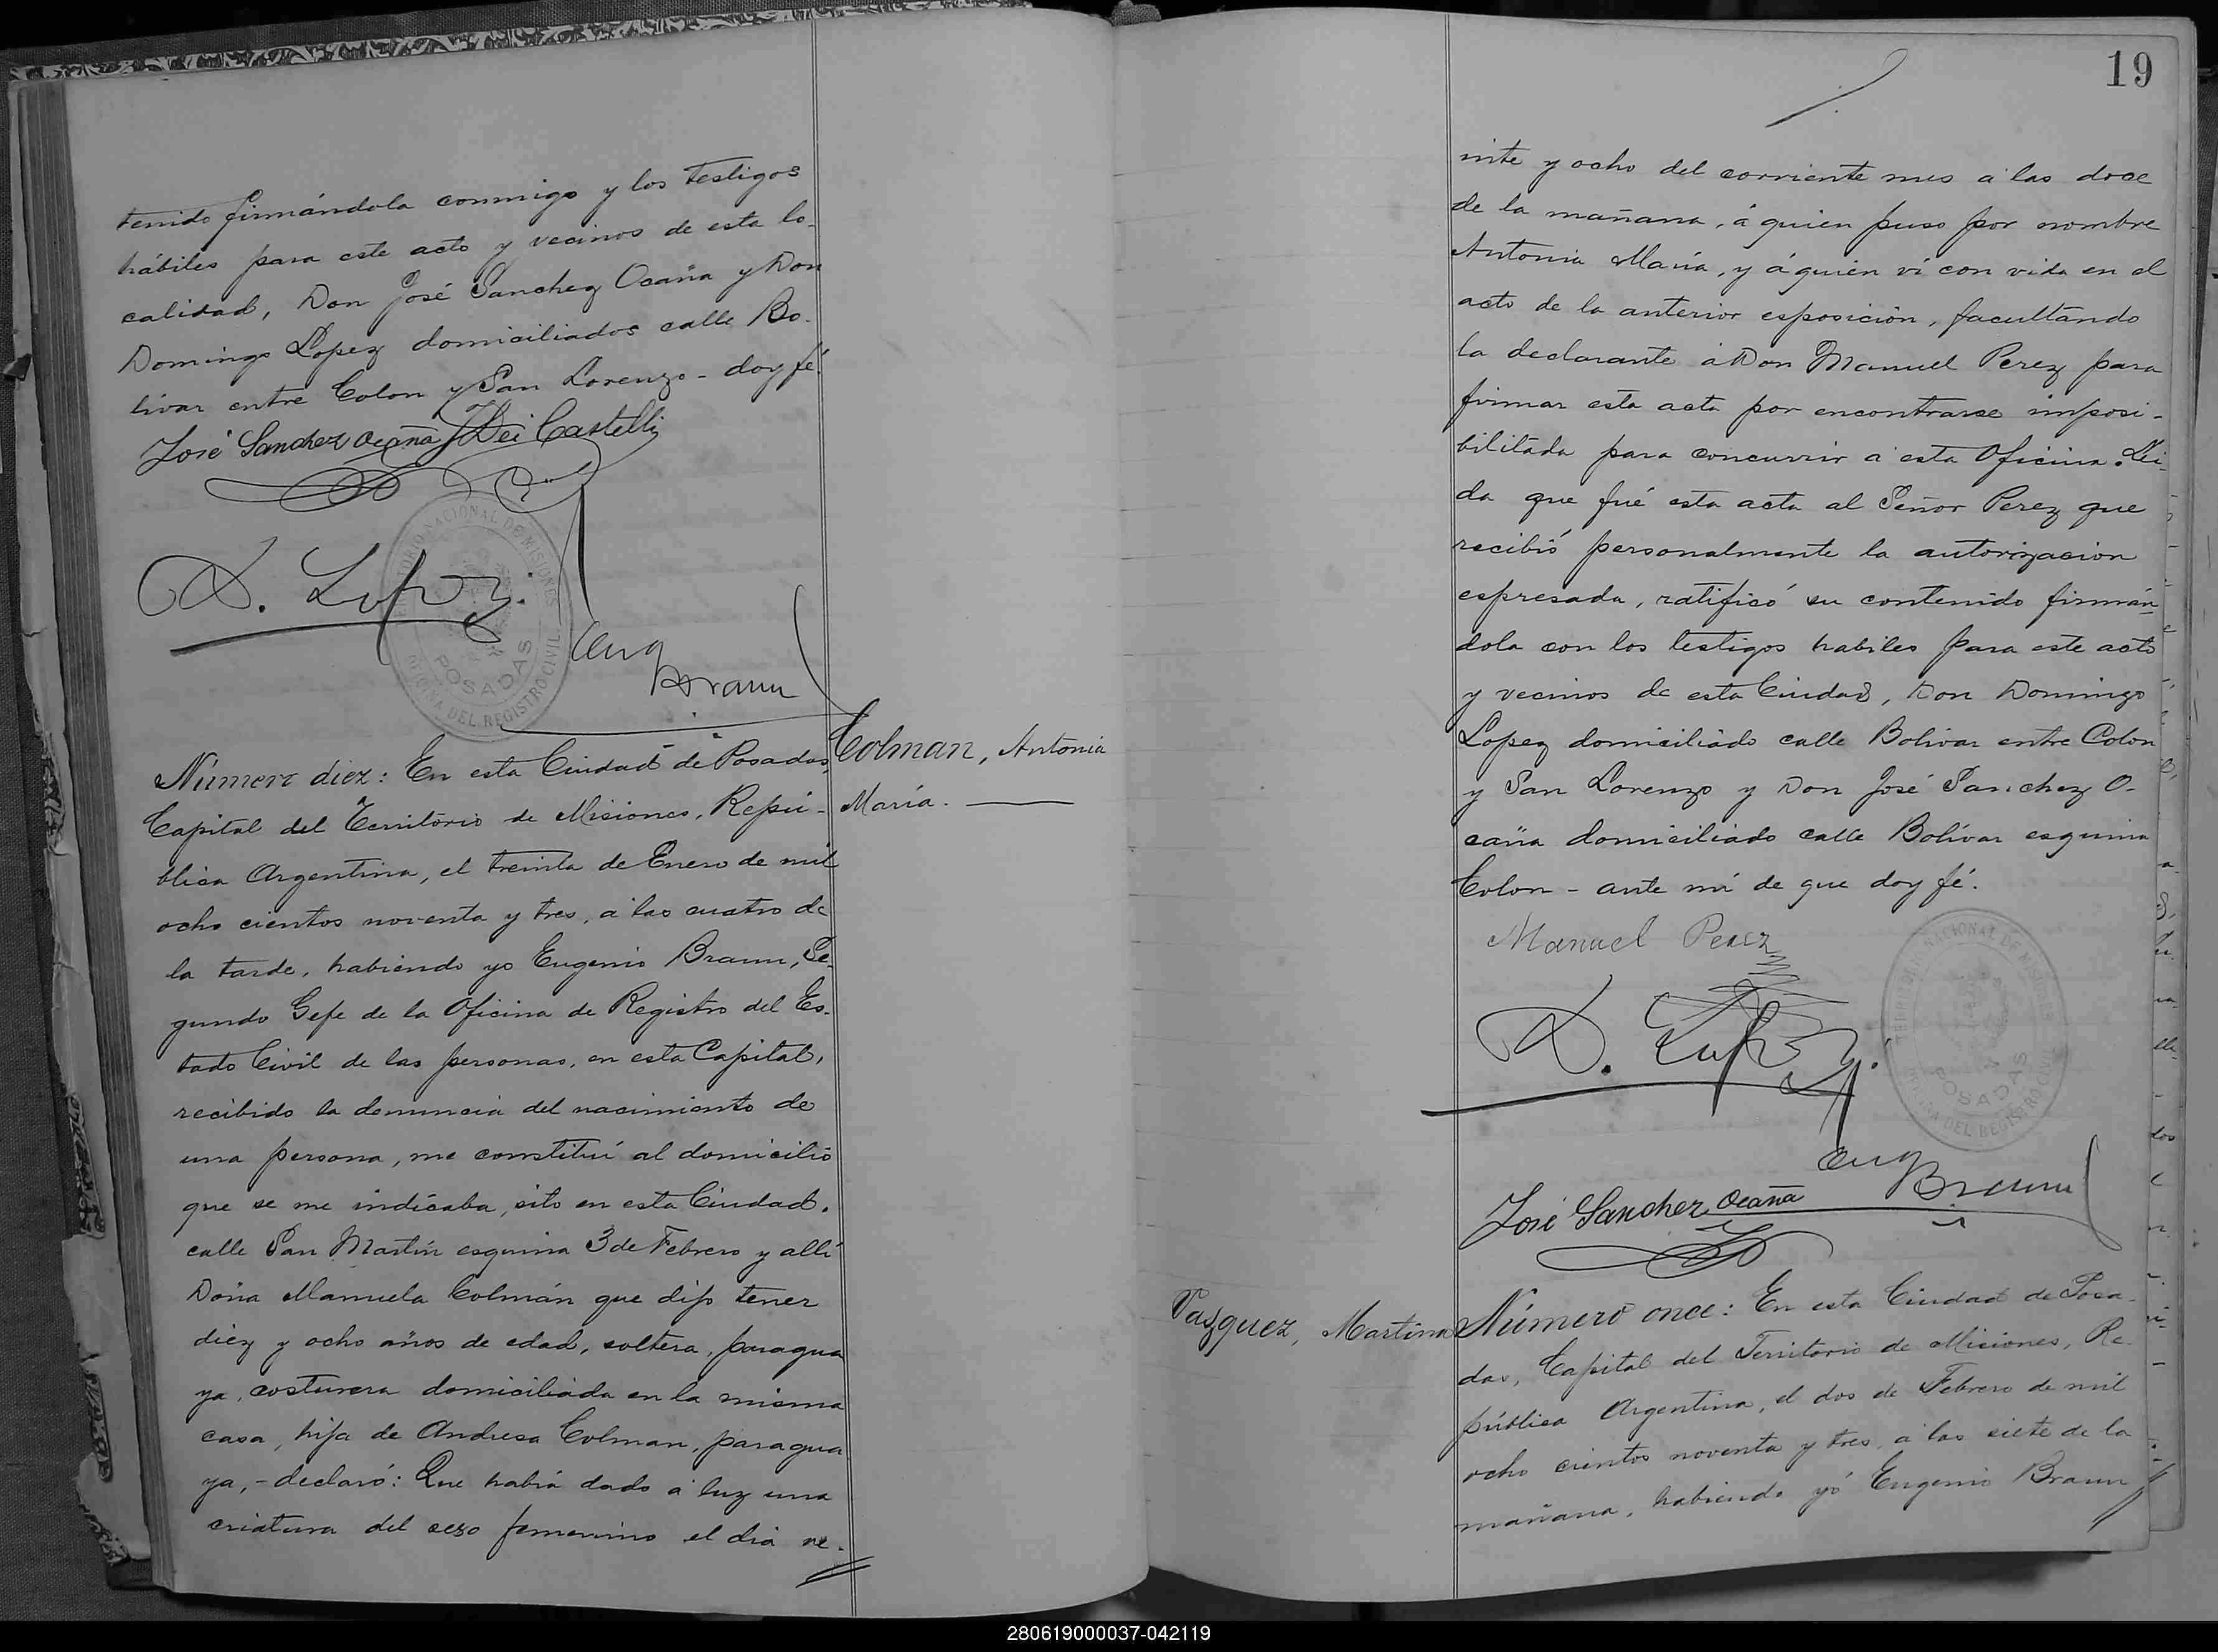 tenido firmándola conmigo y los testigos
hábiles para este acto y vecinos de esta lo-
calidad, Don José Sanchez Ocaña y Don
Domingo Lopez domiciliados calle Bo-
livar entre Colon y San Lorenzo - doy fé.
José Sanchez Ocaña J Dei Castelli
D. Lopez.
TERRITORIO NACIONAL DE MISIONES
POSADAS
OFICINA DEL REGISTRO CIVIL
Eug Braun
Colman, Antonia
María.
Número diez: En esta Ciudad de Posadas,
Capital del Territorio de Misiones, Repú-
blica Argentina, el treinta de Enero de mil
ocho cientos noventa y tres, á las cuatro de
la tarde, habiendo yo Eugenio Braun, Se-
gundo Gefe de la Oficina de Registro del Es-
tado Civil de las personas, en esta Capital,
recibido la denuncia del nacimiento de
una persona, me constituí al domicilio
que se me indicaba, sito en esta Ciudad,
calle San Martín esquina 3 de Febrero y allí
Doña Manuela Colmán que dijo tener
diez y ocho años de edad, soltera, paragua
ya, costurera domiciliada en la misma
casa, hija de Andresa Colman, paragua
ya, - declaró: Que habia dado á luz una
criatura del sexo femenino el dia ve-
19
inte y ocho del corriente mes á las doce
de la mañana, á quien puso por nombre
Antonia María, y á quien ví con vida en el
acto de la anterior esposición, facultando
la declarante á Don Manuel Perez para
firmar esta acta por encontrarse imposi-
bilitada para concurrir á esta Oficina. Lei-
da que fué esta acta al Señor Perez que
recibió personalmente la autorizacion
espresada, ratificó su contenido firmán
dola con los testigos habiles para este acto
y vecinos de esta Ciudad, Don Domingo
Lopez domiciliado calle Bolivar entre Colon
y San Lorenzo y Don José Sanchez O-
caña domiciliado calle Bolívar esquina
Colon - ante mí de que doy fé.
Manuel Perez
D. Lopez.
TERRITORIO NACIONAL DE MISIONES
POSADAS
OFICINA DEL REGISTRO CIVIL
Eug Braun
José Sanchez Ocaña
Vazquez, Martina
Número once: En esta Ciudad de Posa-
das, Capital del Territorio de Misiones, Re-
pública Argentina, el dos de Febrero de mil
ocho cientos noventa y tres, á las siete de la
mañana, habiendo yó Eugenio Braun
280619000037-042119